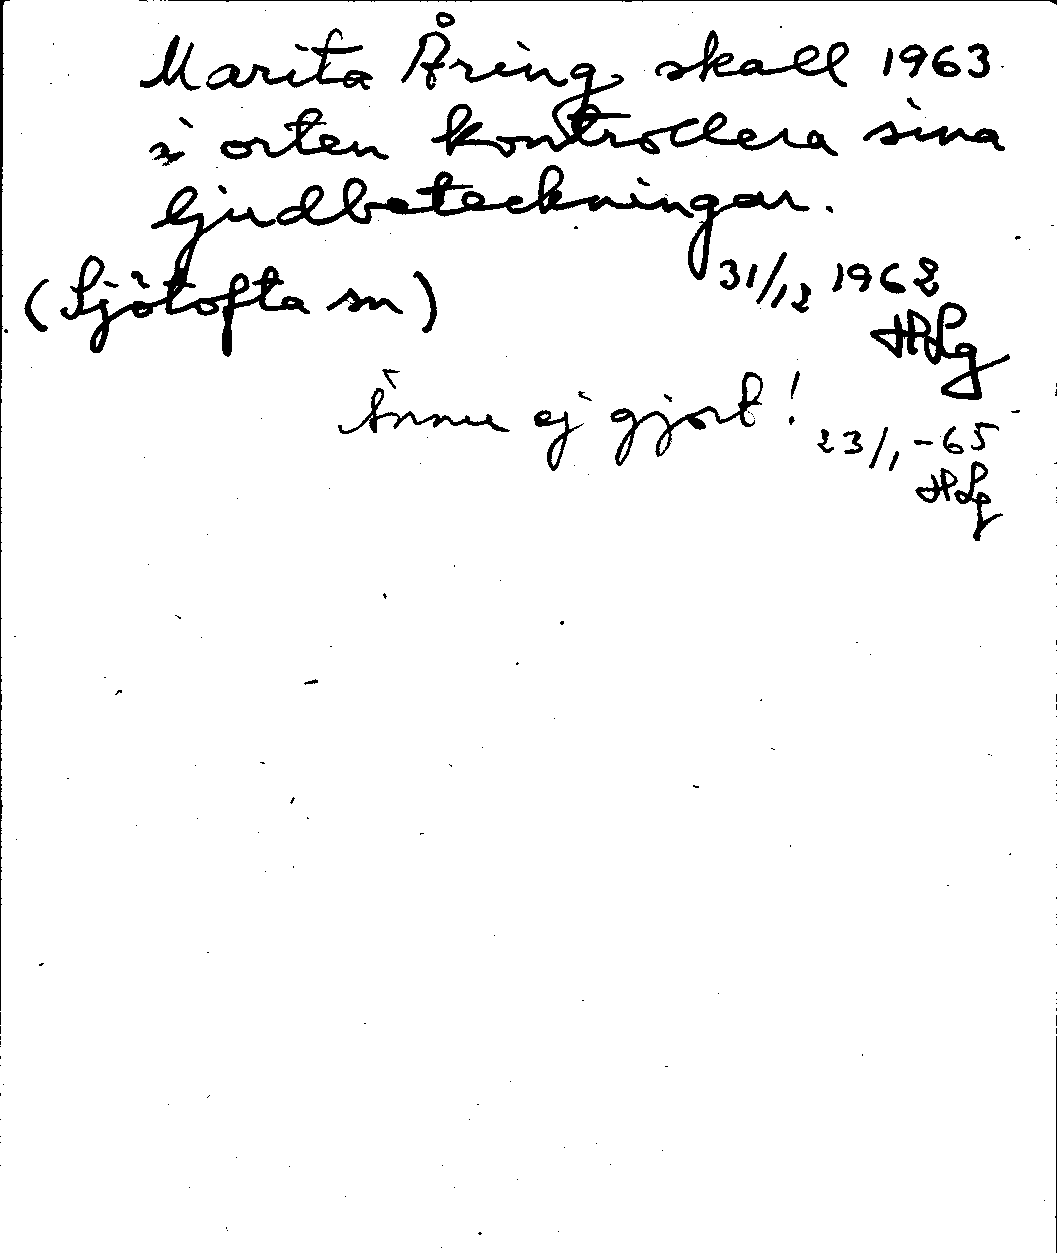 Marita Åring skall 1963
i orten kontrollera sina
ljudbeteckningar.
(Sjötofta sn)
31/12 1962
HLg
Ännu ej gjort!
23/1 -65
HLg